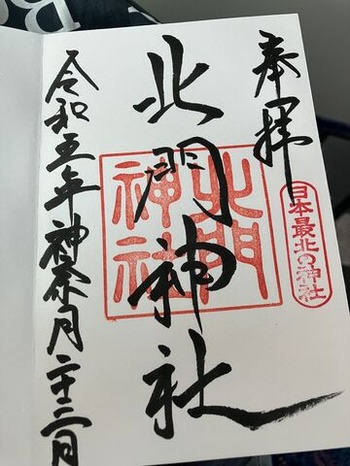 奉拝
日本最北の神社
北門神社
北門
神社
令和五年神奈月二十二日